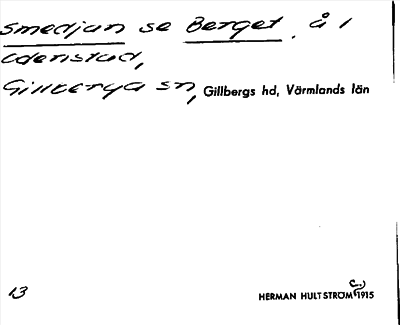 Smedjan se Berget, å 1
Edenstad,
Gillberga sn, Gillbergs hd, Värmlands län
13
HERMAN HULTSTRÖM 1915